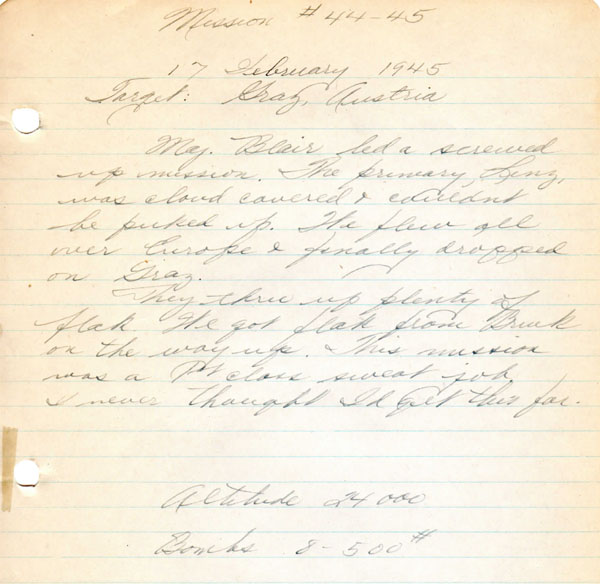 Mission # 44-45
17 February 1945
Target: Graz, Austria
Maj. Blair led a screwed
up mission. The primary, Linz,
was cloud covered & couldnt
be picked up. We flew all
over Europe & finally dropped
on Graz.
They thru up plenty of
flak. We got flak from Bruck
on the way up. This mission
was a 1st class sweat job.
I never thought I'd get this far.
Altitude 24000
Bombs 8-500#